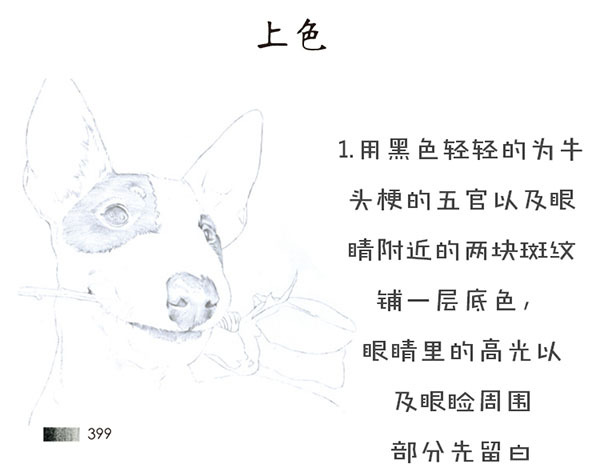 上色
1.用黑色轻轻的为牛
头梗的五官以及眼
睛附近的两块斑纹
铺一层底色，
眼睛里的高光以
及眼睑周围
部分先留白
399